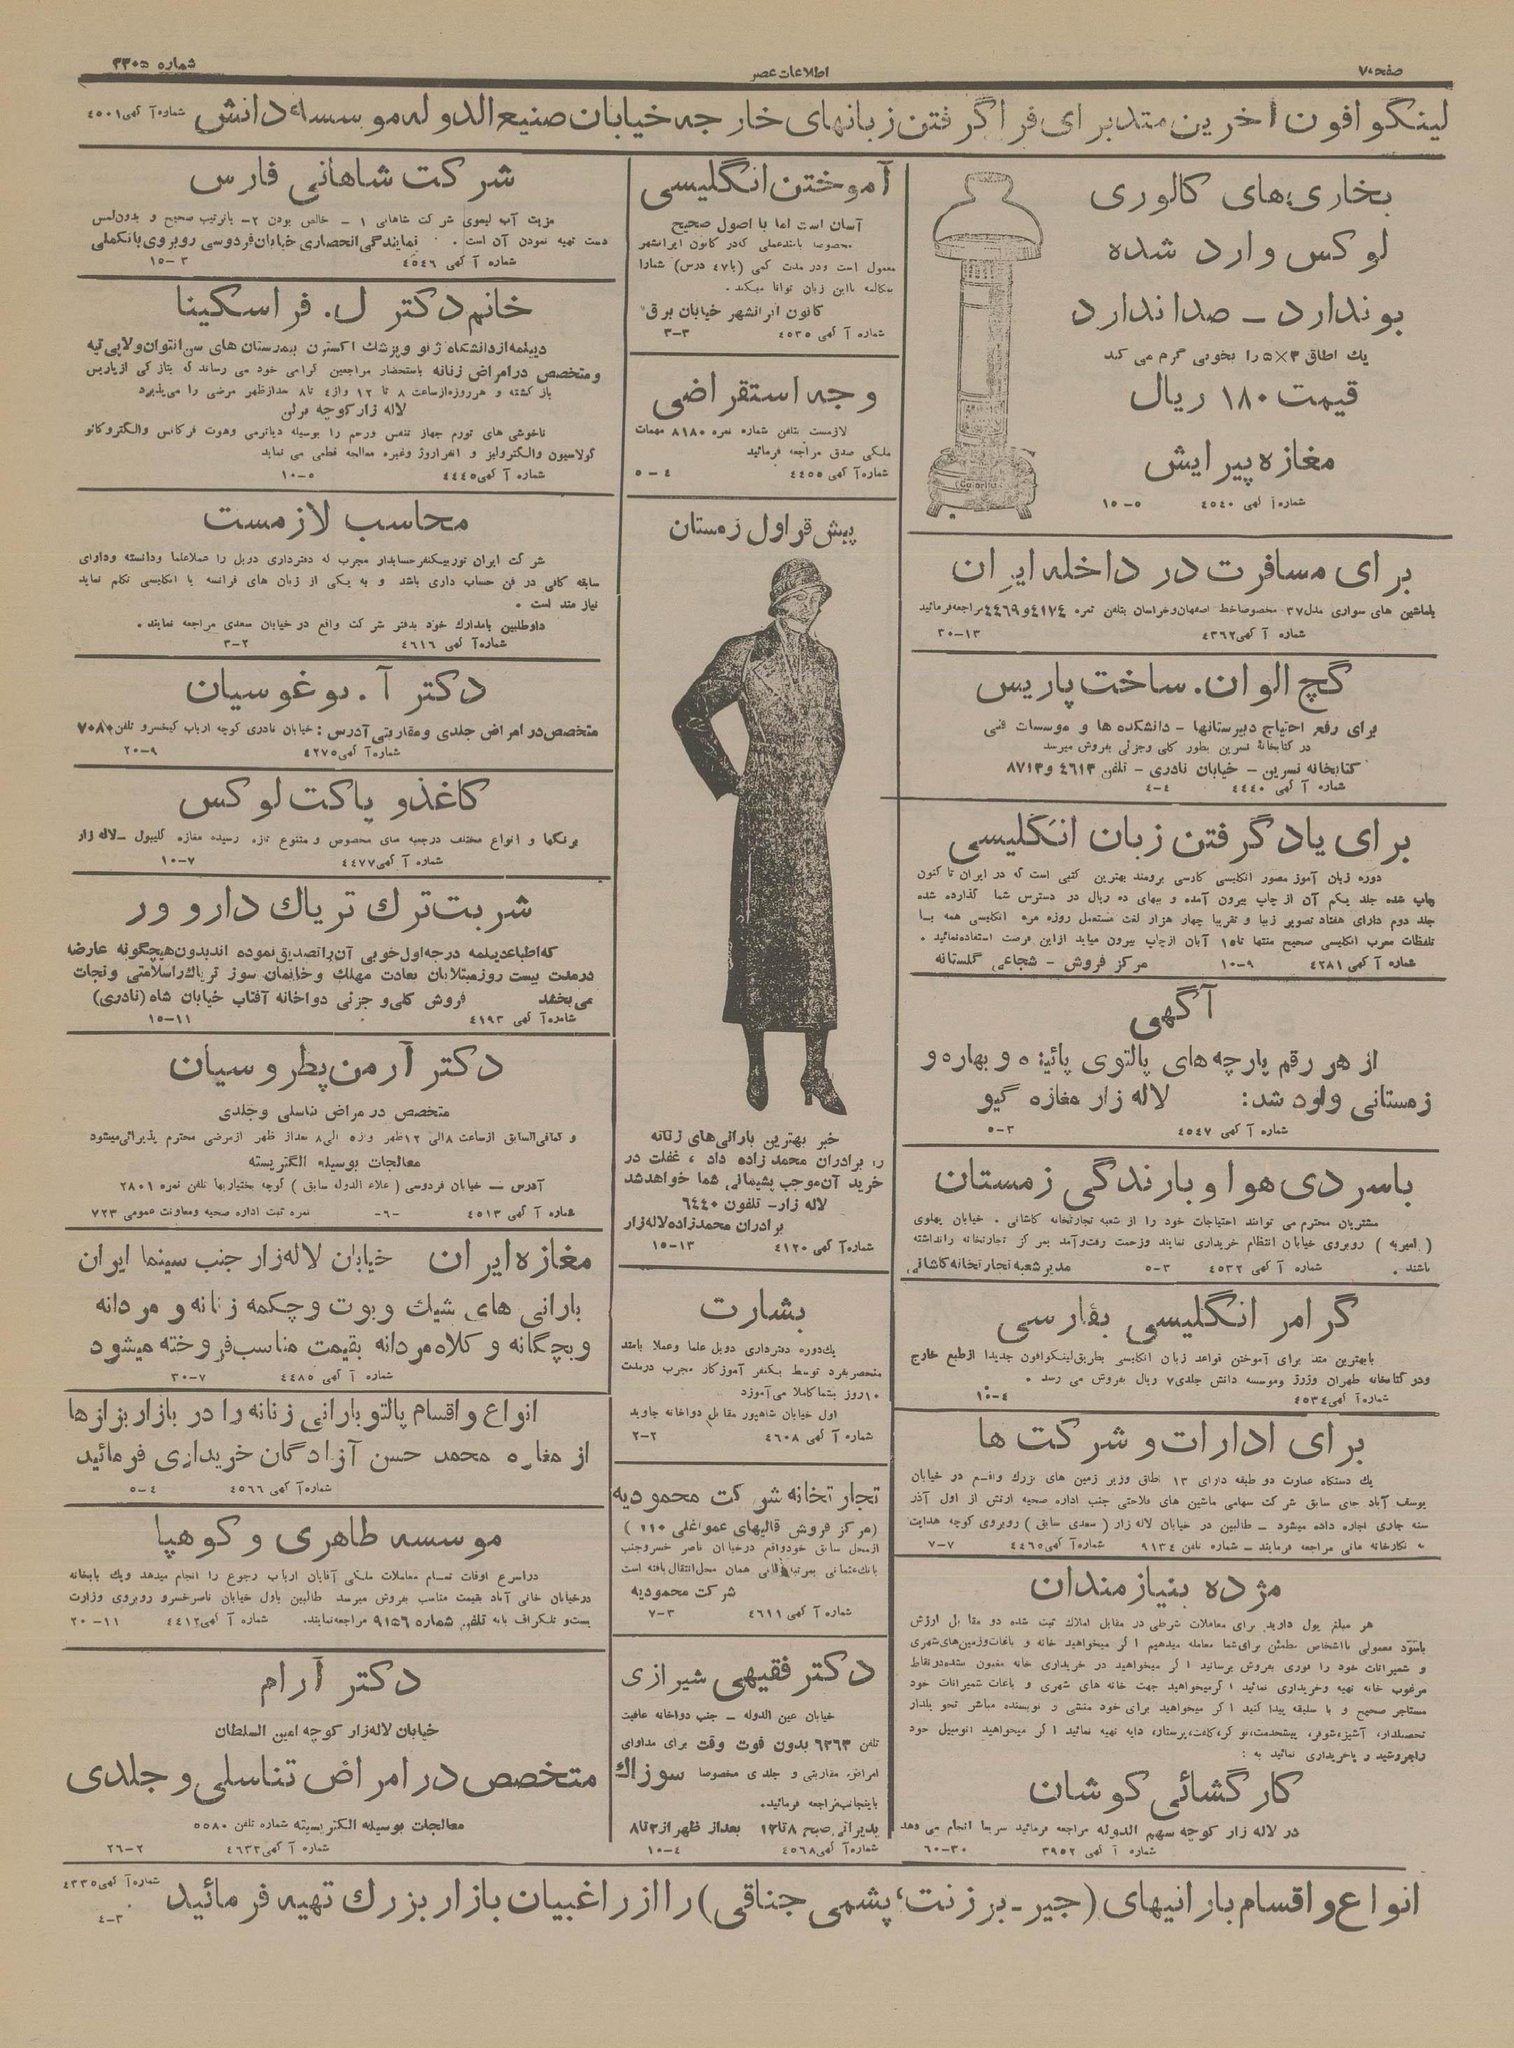 صفحه ۷
اطلاعات عصر
شماره ۳۳۰۵
لینگوافون آخرین متد برای فراگرفتن زبانهای خارجه خیابان صنیع الدوله موسسه دانش شماره آگهی ۴۵۰۱
بخاری‌های کالوری
لوکس وارد شده
بوندارد - صداندارد
یك اطاق ۴×۵ را بخوبی گرم می کند
قیمت ۱۸۰ ریال
مغازه پیرایش
شماره آگهی ۴۵۴۰ ۵-۱۵
برای مسافرت در داخله ایران
باماشین های سواری مدل ۳۷ مخصوصا خط اصفهان و خراسان بتلفن نمره ۴۱۷۴ و ۴۴۶۹ مراجعه فرمائید
شماره آگهی ۴۳۶۲ ۱۳-۳۰
گچ الوان. ساخت پاریس
برای رفع احتیاج دبیرستانها - دانشکده ها و موسسات فنی
در کتابخانه نسرین بطور کلی وجزئی بفروش میرسد
کتابخانه نسرین - خیابان نادری - تلفن ۴۶۱۳ و ۸۷۱۳
شماره آگهی ۴۴۴۰ ۴-۴
برای یادگرفتن زبان انگلیسی
دوره زبان آموز مصور انگلیسی کارسی برومند بهترین کتبی است که در ایران تا کنون
چاپ شده جلد یکم آن از چاپ بیرون آمده و ببهای ده ریال در دسترس شما گذارده شده
جلد دوم دارای هفتاد تصویر زیبا و تقریبا چهار هزار لغت مستعمل روزه مره انگلیسی همه با
تلفظات معرب انگلیسی صحیح منتها تا ۱۵ آبان از چاپ بیرون میاید از این فرصت استفاده نمائید.
شماره آگهی ۴۲۸۱ ۹-۱۰ مرکز فروش - شجاعی گلستانه
آگهی
از هر رقم پارچه های پالتوی پائیزه و بهاره و
زمستانی وارد شد: لاله زار مغازه گیو
شماره آگهی ۴۵۴۷ ۳-۵
باسردی هوا و بارندگی زمستان
مشتریان محترم می توانند احتیاجات خود را از شعبه تجارتخانه کاشانی. خیابان پهلوی
(امیریه) روبروی خیابان انتظام خریداری نمایند و زحمت رفت‌رآمد بمرکز تجارتخانه رانداشته
باشند. شماره آگهی ۴۵۳۲ ۳-۵ مدیر شعبه تجارتخانه کاشانی
گرامر انگلیسی بفارسی
بابهترین متد برای آموختن قواعد زبان انگلیسی بطریق لینگوافون جدیدا از طبع خارج
ودو کتابخانه طهران وزوز وموسسه دانش جلدی ۷ ریال بفروش می رسد.
شماره آگهی ۴۵۳۴ ۴-۱۰
برای ادارات و شرکت ها
یك دستگاه عمارت دو طبقه دارای ۱۳ اطاق وزیر زمین های بزرك واقع در خیابان
یوسف آباد جای سابق شرکت سهامی ماشین های فلاحتی جنب اداره صحیه ارتش از اول آذر
سنه جاری اجاره داده میشود - طالبین در خیابان لاله زار (سعدی سابق) روبروی کوچه هدایت
به نگارخانه مانی مراجعه فرمایند - شماره تلفن ۹۱۳۴ شماره آگهی ۴۴۶۵ ۷-۷
مژده بنیازمندان
هر مبلغ پول دارید برای معاملات شرطی در مقابل املاك ثبت شده دو مقابل ارزش
باسود معمولی بااشخاص مطمئن برای شما معامله میدهیم اگر میخواهید خانه و باغات وزمین های شهری
و شمیرانات خود را فوری بفروش برسانید اگر میخواهید در خریداری خانه مغبون نشده درنقاط
مرغوب خانه تهیه وخریداری نمائید اگر میخواهید جهت خانه های شهری و باغات شمیرانات خود
مستاجر صحیح و با سلیقه پیدا کنید اگر میخواهید برای خود منشی و نویسنده مباشر تحویلدار
تحصیلدار، آشپز، شوفر، پیشخدمت، نوکر، کلفت، پرستار، دایه تهیه نمائید اگر میخواهید اتومبیل خود
رابفروشید و یاخریداری نمائید به:
کارگشائی کوشان
در لاله زار کوچه سهم الدوله مراجعه فرمائید سریعا انجام می دهد
شماره آگهی ۳۹۵۲ ۳۰-۶۰
آموختن انگلیسی
آسان است اما با اصول صحیح
مخصوصا بامتدعملی که در کانون ایرانشهر
معمول است ودر مدت کمی (با ۴۷ درس) شمارا
بمکالمه بااین زبان توانا میکند.
کانون ایرانشهر خیابان برق
شماره آگهی ۴۵۳۵ ۳-۳
وجه استقراضی
لازمست بتلفن شماره نمره ۸۱۸۰ مهمات
ملکی صدق مراجعه فرمائید
شماره آگهی ۴۴۵۵ ۴-۵
پیش قراول زمستان
خبر بهترین بارانی‌های زنانه
را برادران محمدزاده داد، غفلت در
خرید آن موجب پشیمانی شما خواهدشد
لاله زار - تلفون ۶۴۴۰
برادران محمدزاده لاله زار
شماره آگهی ۴۱۲۰ ۱۳-۱۵
بشارت
یك دوره دفترداری دوبل علما وعملا بامتد
منحصربفرد توسط یکنفر آموزکار مجرب درمدت
۱۰ روز بشما کاملا می آموزد
اول خیابان شاهپور مقابل دواخانه جاوید
شماره آگهی ۴۶۰۸ ۲-۲
تجارتخانه شرکت محمودیه
(مرکز فروش قالیهای عمواغلی ۱۱۰)
ازمحل سابق خود واقع درخیابان ناصر خسرو جنب
بانك عثمانی بمرتبه فوقانی همان محل انتقال یافته است
شرکت محمودیه
شماره آگهی ۴۶۱۱ ۳-۷
دکتر فقیهی شیرازی
خیابان عین الدوله - جنب دواخانه عافیت
تلفن ۶۲۶۳ بدون فوت وقت برای مداوای
امراض مقاربتی و جلدی مخصوصا سوزاك
باینجانب مراجعه فرمائید.
پذیرائی صبح ۸ تا ۱۲ بعداز ظهر از ۳ تا ۸
شماره آگهی ۴۵۶۸ ۴-۱۰
شرکت شاهانی فارس
مزیت آب لیموی شرکت شاهانی ۱ - خالص بودن ۲- باترتیب صحیح و بدون لمس
دست تهیه نمودن آن است. نمایندگی انحصاری خیابان فردوسی روبروی بانك ملی
شماره آگهی ۴۵۴۶ ۳-۱۵
خانم دکتر ل. فراسکینا
دیپلمه از دانشگاه ژنو وپزشك اکسترن بیمارستان های سن آنتوان ولاپی تیه
ومتخصص در امراض زنانه باستحضار مراجعین گرامی خود می رساند که بتازگی از پاریس
بازگشته و هر روزه از ساعت ۸ تا ۱۲ و از ۴ تا ۸ بعدازظهر مرضی را می پذیرد
لاله زار کوچه برلن
ناخوشی های تورم جهاز تنفس ورحم را بوسیله دیاترمی وهوت فرکانس والکتروکائو
گولاسیون والکترولیز و انفراروژ وغیره معالجه قطعی می نماید
شماره آگهی ۴۴۴۵ ۵-۱۰
محاسب لازمست
شرکت ایران تور بیکنفر حسابدار مجرب که دفترداری دوبل را عملا علما ودانسته ودارای
سابقه کافی در فن حساب داری باشد و به یکی از زبان های فرانسه یا انگلیسی تکلم نماید
نیازمند است.
داوطلبین بامدارك خود بدفتر شرکت واقع در خیابان سعدی مراجعه نمایند.
شماره آگهی ۴۶۱۶ ۲-۳
دکتر آ. بوغوسیان
متخصص در امراض جلدی ومقاربتی آدرس: خیابان نادری کوچه ارباب کیخسرو تلفن ۷۰۸۴
شماره آگهی ۴۲۷۵ ۹-۲۰
کاغذ و پاکت لوکس
برنگها و انواع مختلف درجعبه های مخصوص و متنوع تازه رسیده مغازه کلیپول - لاله زار
شماره آگهی ۴۴۷۷ ۷-۱۰
شربت ترك تریاك دارو ور
که اطباء دیپلمه درجه اول خوبی آنرا تصدیق نموده اند بدون هیچگونه عارضه
درمدت بیست روز مبتلایان بعادت مهلك وخانمان سوز تریاك راسلامتی ونجات
می بخشد فروش کلی و جزئی دواخانه آفتاب خیابان شاه (نادری)
شماره آگهی ۴۱۹۳ ۱۱-۱۵
دکتر آرمن پطروسیان
متخصص در مراض تناسلی وجلدی
و کمافی السابق از ساعت ۸ الی ۱۲ ظهر واز ۵ الی ۸ بعداز ظهر ازمرضی محترم پذیرائی میشود
معالجات بوسیله الکتریسته
آدرس - خیابان فردوسی (علاء الدوله سابق) کوچه بختیاریها تلفن نمره ۲۸۰۱
شماره آگهی ۴۵۱۳ -۶- نمره ثبت اداره صحیه ومعاونت عمومی ۷۲۳
مغازه ایران خیابان لاله زار جنب سینما ایران
بارانی های شیك و بوت و چکمه زنانه و مردانه
و بچگانه و کلاه مردانه بقیمت مناسب فروخته میشود
شماره آگهی ۴۴۸۵ ۷-۳۰
انواع و اقسام پالتو بارانی زنانه را در بازار بزازها
از مغازه محمد حسن آزادگان خریداری فرمائید
شماره آگهی ۴۵۶۶ ۴-۵
موسسه طاهری و کوهپا
دراسرع اوقات تمام معاملات ملکی آقایان ارباب رجوع را انجام میدهد ویك بابخانه
درخیابان خانی آباد بقیمت مناسب بفروش میرسد طالبین باول خیابان ناصرخسرو روبروی وزارت
پست و تلگراف بابه تلفن شماره ۹۱۵۶ مراجعه نمایند. شماره آگهی ۴۴۱۲ ۱۱-۲۰
دکتر آرام
خیابان لاله زار کوچه امین السلطان
متخصص در امراض تناسلی و جلدی
معالجات بوسیله الکتریسیته شماره تلفن ۵۵۸۰
شماره آگهی ۴۶۳۲ ۲-۲۶
انواع و اقسام بارانیهای (جیر - برزنت، پشمی جناقی) را از راغبیان بازار بزرك تهیه فرمائید شماره آگهی ۴۳۳۵
۳-۴